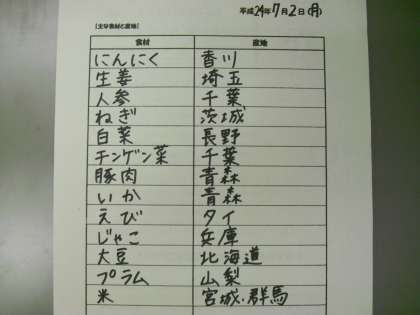 平成24年7月2日(月)
[主な食材と産地]
食材 産地
にんにく 香川
生姜 埼玉
人参 千葉
ねぎ 茨城
白菜 長野
チンゲン菜 千葉
豚肉 青森
いか 青森
えび タイ
じゃこ 兵庫
大豆 北海道
プラム 山梨
米 宮城・群馬